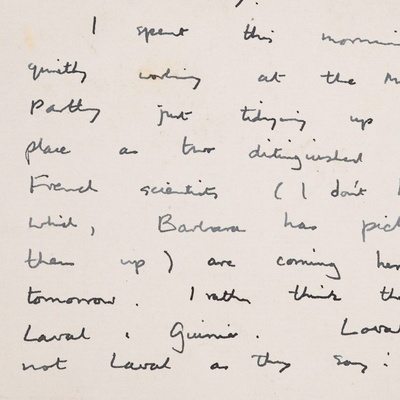 I spent this mornin
quietly working at the M
Partly just tidying up
place as two distinguished
French scientists (I don't
which, Barbara has pic
them up) are coming her
tomorrow. I rather think th
Laval & Guinier. Laval
not Laval as they say: